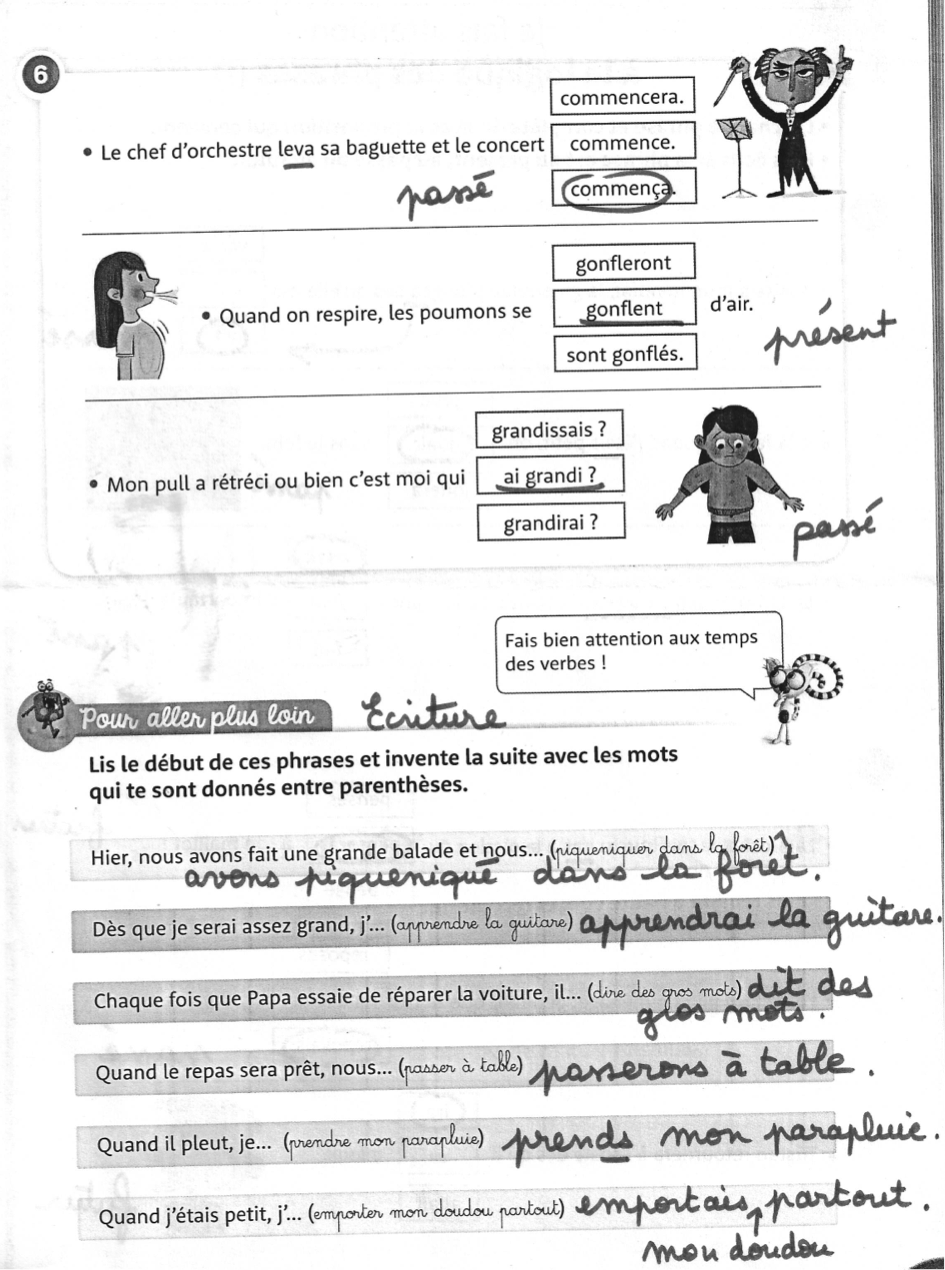 6
commencera.
• Le chef d'orchestre leva sa baguette et le concert commence.
passé commença.
gonfleront
• Quand on respire, les poumons se gonflent d'air.
présent
sont gonflés.
grandissais ?
• Mon pull a rétréci ou bien c'est moi qui ai grandi ?
grandirai ?
passé
Fais bien attention aux temps
des verbes !
Pour aller plus loin Ecriture
Lis le début de ces phrases et invente la suite avec les mots
qui te sont donnés entre parenthèses.
Hier, nous avons fait une grande balade et nous... (piqueniquer dans la forêt)
avons piqueniqué dans la forêt.
Dès que je serai assez grand, j'... (apprendre la guitare) apprendrai la guitare.
Chaque fois que Papa essaie de réparer la voiture, il... (dire des gros mots) dit des
glos mots.
Quand le repas sera prêt, nous... (passer à table) passerons à table.
Quand il pleut, je... (prendre mon parapluie) prends mon parapluie.
Quand j'étais petit, j'... (emporter mon doudou partout) emportais partout.
mon doudou